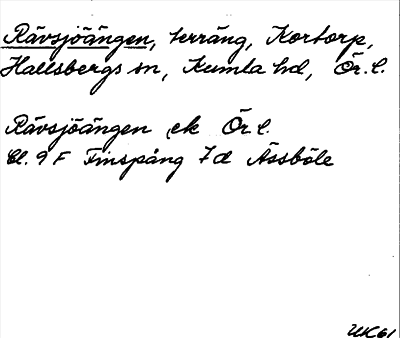 Rävsjöängen, terräng, Kortorp,
Hallsbergs sn, Kumla hd, Ör. l.
Rävsjöängen ek Ör l.
Bl. 9 F Finspång 7d Åssböle
UK61